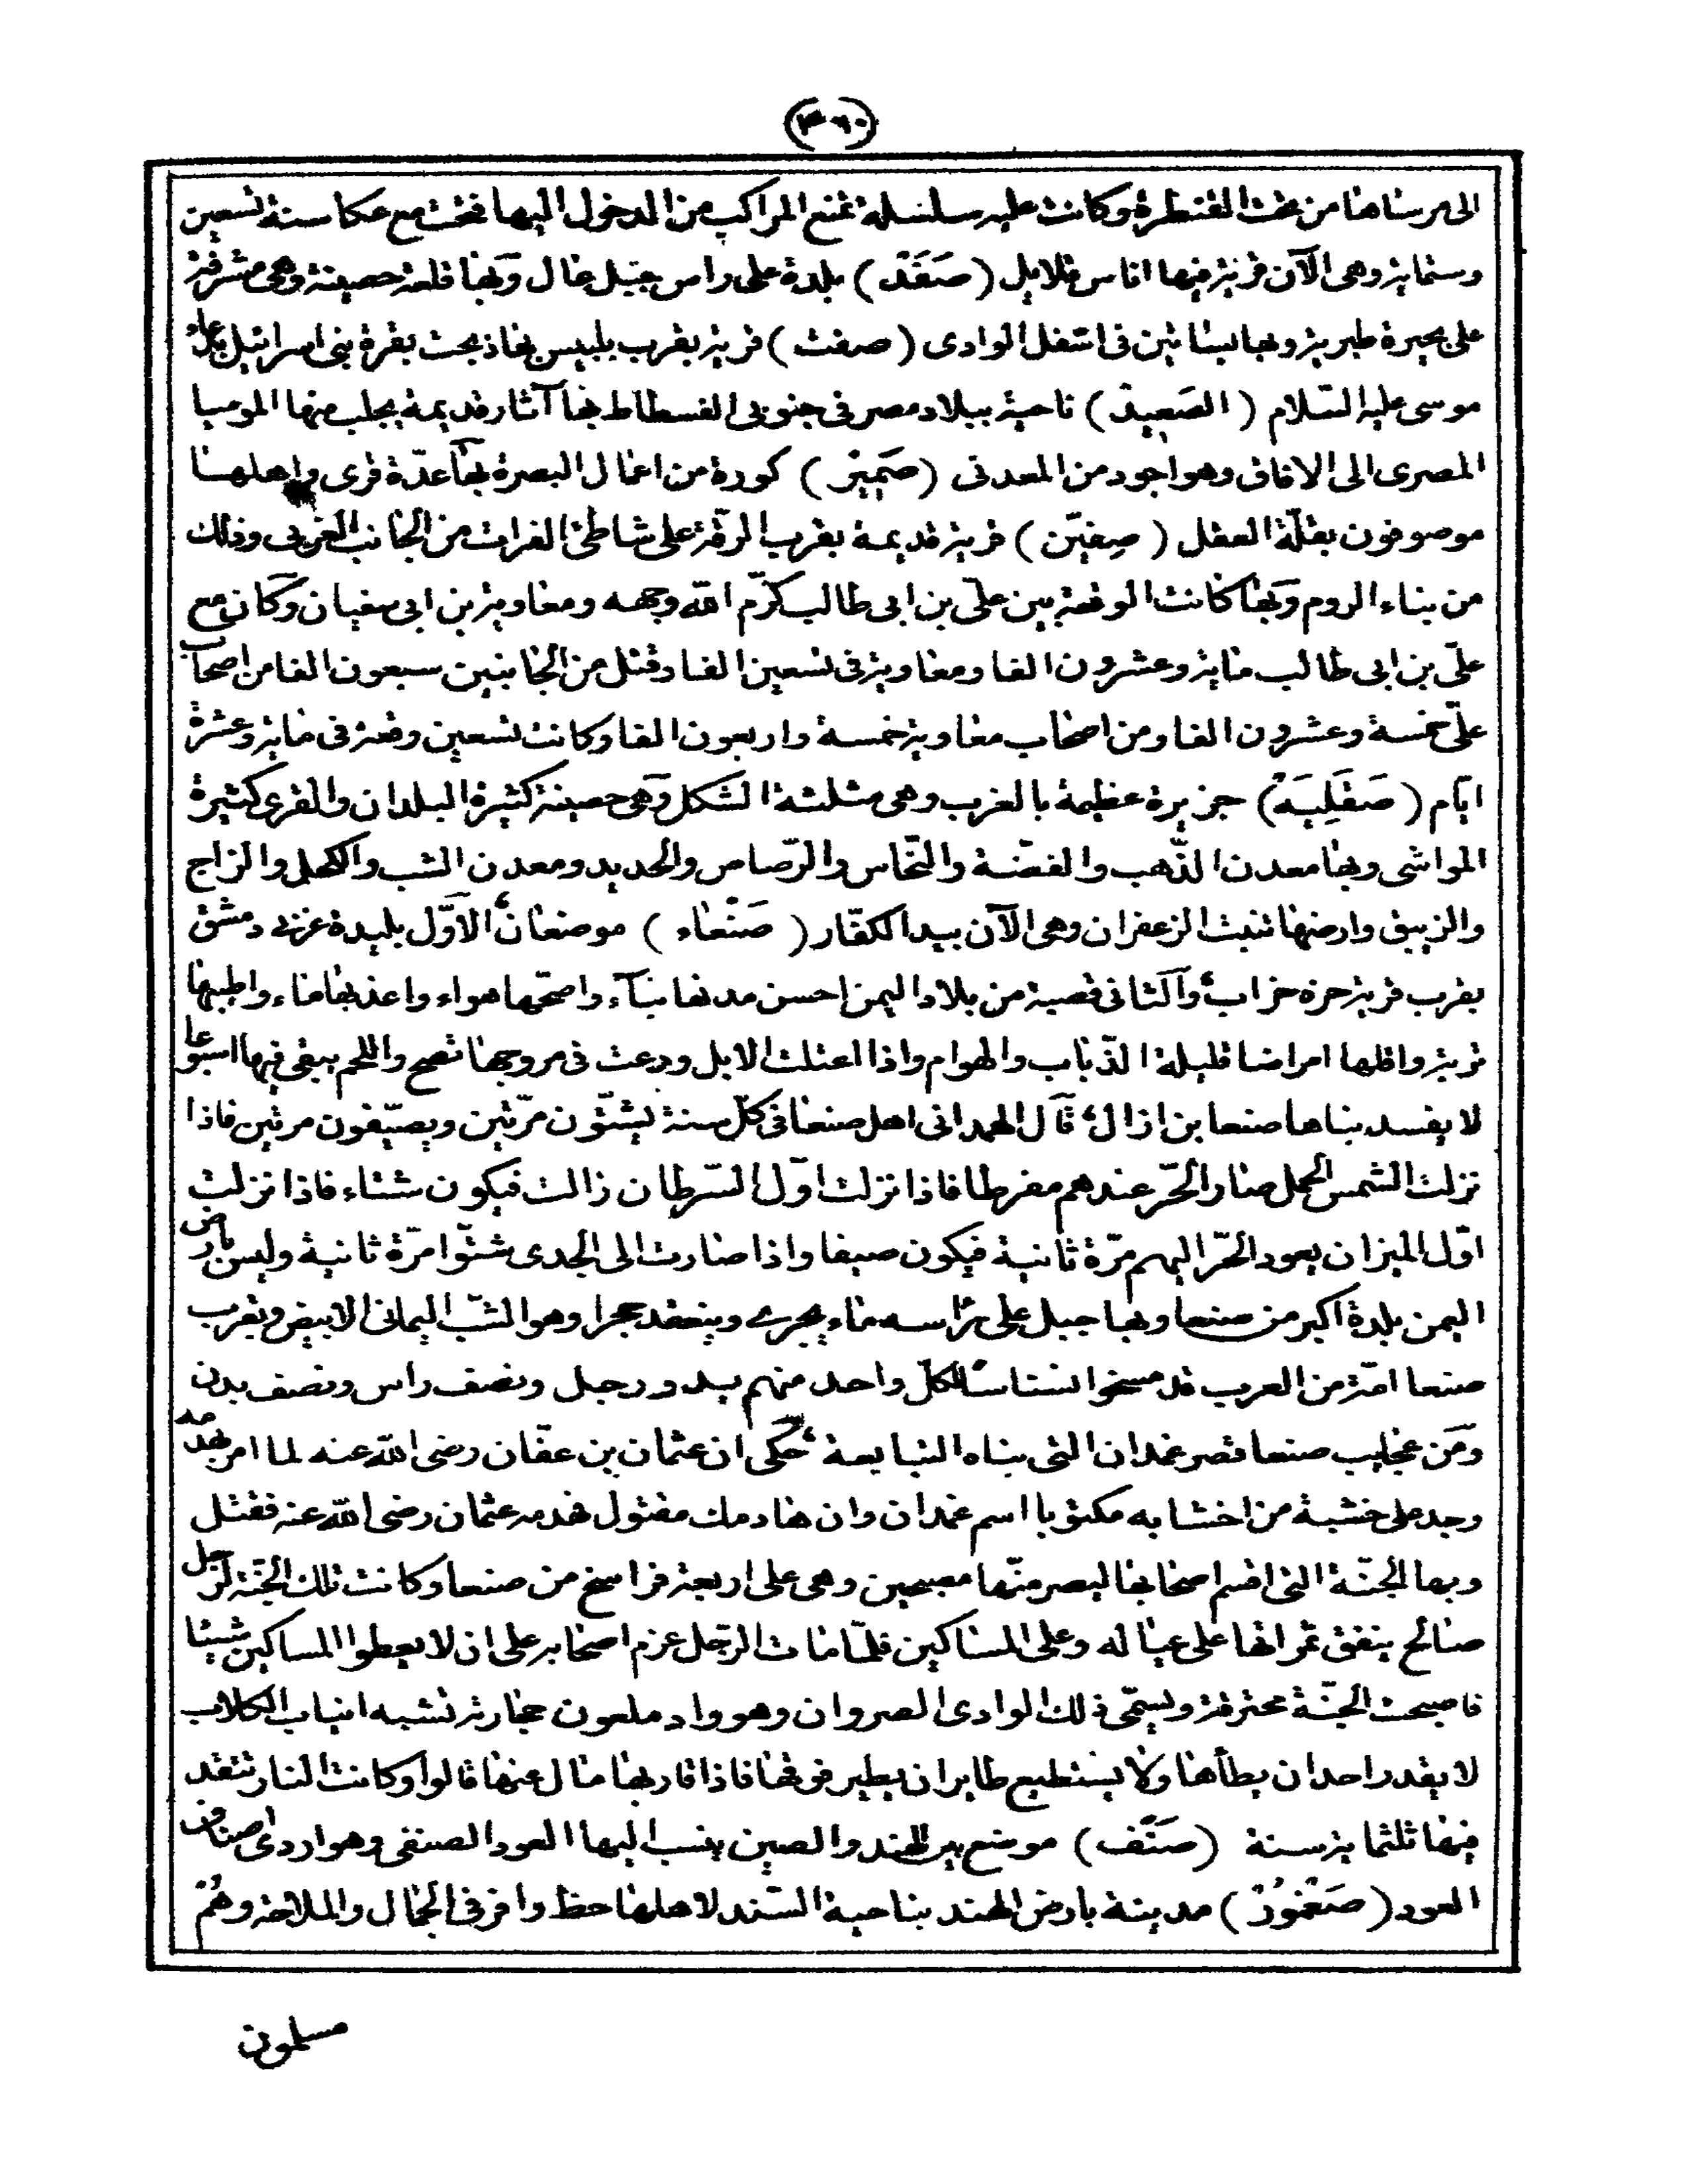 (٤٦٠)
الى مرساها من تحت القنطرة وكانت عليه سلسلة تمنع المراكب من الدخول اليها فتحت مع عكا سنة تسعين
وستماية وهى الآن قرية فيها اناس قلايل (صَفَدْ) بلدة على راس جبل عال وبها قلعة حصينة وهى مشرفة
على بحيرة طبرية وبها بساتين فى اسفل الوادى (صفت) قرية بقرب بلبيس بها ذبحت بقرة بنى اسرائيل
موسى عليه السّلام (الصَعِيدْ) ناحية ببلاد مصر فى جنوبى الفسطاط بها آثار قديمة يجلب منها الموميا
المصرى الى الافاق وهو اجود من المعدنى (صَمِيَرْ) كورة من اعمال البصرة بها عدّة قرى واهلها
موصوفون بقلّة العقل (صِفيّن) قرية قديمة بقرب الرقة على شاطئ الفرات من الجانب الغربى وذلك
من بناء الروم وبها كانت الوقعة بين علىّ بن ابى طالب كرّم الله وجهه ومعاوية بن ابى سفيان وكان مع
علىّ بن ابى طالب ماية وعشرون الفا ومعاوية فى تسعين الفا وقتل من الجانبين سبعون الفا من اصحاب
علىّ خمسة وعشرون الفا ومن اصحاب معاوية خمسة واربعون الفا وكانت تسعين وقعة فى ماية وعشرة
ايّام (صَقَلِيَهْ) جزيرة عظيمة بالغرب وهى مثلثة الشكل وهى حصينة كثيرة البلدان والقرى كثيرة
المواشى وبها معدن الذّهب والفضّة والنّحاس والرّصاص والحديد ومعدن الشب والكحل والزاج
والزيبق وارضها تنبت الزعفران وهى الآن بيد الكفّار (صَنْعاء) موضعان الاوّل بليدة غربى دمشق
بقرب قرية حزه خراب والثانى قصبة من بلاد اليمن احسن مدنها بناء واصحّها هواء واعذبها ماء واطيبها
تربة واقلها امراضا قليلة الذّباب والهوام واذا اعتلت الابل ودعت فى مروجها تصح واللحم يبقى فيها اسبوعا
لا يفسد بناها صنعا بن ازال قال الهمدانى اهل صنعا فى كلّ سنة يشتّون مرّتين ويصيّفون مرتين فاذا
نزلت الشمس الحمل صار الحّر عندهم مفرطا فاذا نزلت اوّل السّرطان زالت فيكون شتاء فاذا نزلت
اوّل الميزان يعود الحّر اليهم مرّة ثانية فيكون صيفا واذا صارت الى الجدى شتّوا مرّة ثانية وليس بارض
اليمن بلدة اكبر من صنعا وبها جبل على راسه ماء يجرى وينعقد حجرا وهو الشّب اليمانى الابيض وبقرب
صنعا امّة من العرب قد مسخوا نسناسا لكلّ واحد منهم يد ورجل ونصف راس ونصف بدن
ومن عجايب صنعا قصر غمدان التى بناه التبابعة حكى ان عثمان بن عفّان رضى الله عنه لما امر بهدمه
وجد على خشبة من اخشابه مكتوبا اسم غمدان وان هادمك مقتول فهدمه عثمان رضى الله عنه فقتل
وبها الجنّة التى اقسم اصحابها ليصر منّها مصبحين وهى على اربعة فراسخ من صنعا وكانت تلك الجنّة لرجل
صالح ينفق ثمراتها على عياله وعلى المساكين فلمّا مات الرّجل عزم اصحابه على ان لا يعطوا المساكين شيئا
فاصبحت الجنّة محترقة ويسمّى ذلك الوادى الصروان وهو واد ملعون حجارته تشبه انياب الكلاب
لا يقدر احد ان يطأها ولا يستطيع طاير ان يطير فوقها فاذا قاربها مال عنها قالوا وكانت النار تتقد
فيها ثلثماية سنة (صَنْف) موضع بين الهند والصين ينسب اليها العود الصنفى وهو اردى اصناف
العود (صَيْمُورْ) مدينة بارض الهند بناحية السّند لاهلها حظ وافر فى الجمال والملاحة وهم
مسلمون